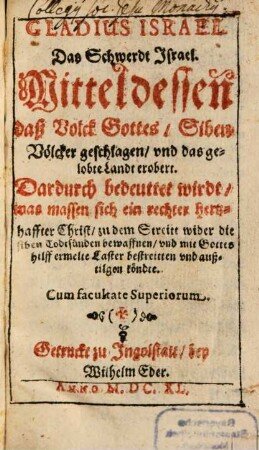 Collegij Soc. Jesu Monachij.
GLADIUS ISRAEL
Das Schwerdt Israel.
Mitteldessen
daß Volck Gottes / Siben
Völcker geschlagen / vnd das ge-
lobte Landt erobert.
Dardurch bedeutet wirdt /
was massen sich ein rechter hertz-
haffter Christ / zu dem Streitt wider die
siben Todtsünden bewaffnen / vnd mit Gottes
hilff ermelte Laster bestreitten vnd auß-
tilgen köndte.
Cum facultate Superiorum.
Getruckt zu Ingolstatt / bey
Wilhelm Eder.
ANNO M. DC. XL.